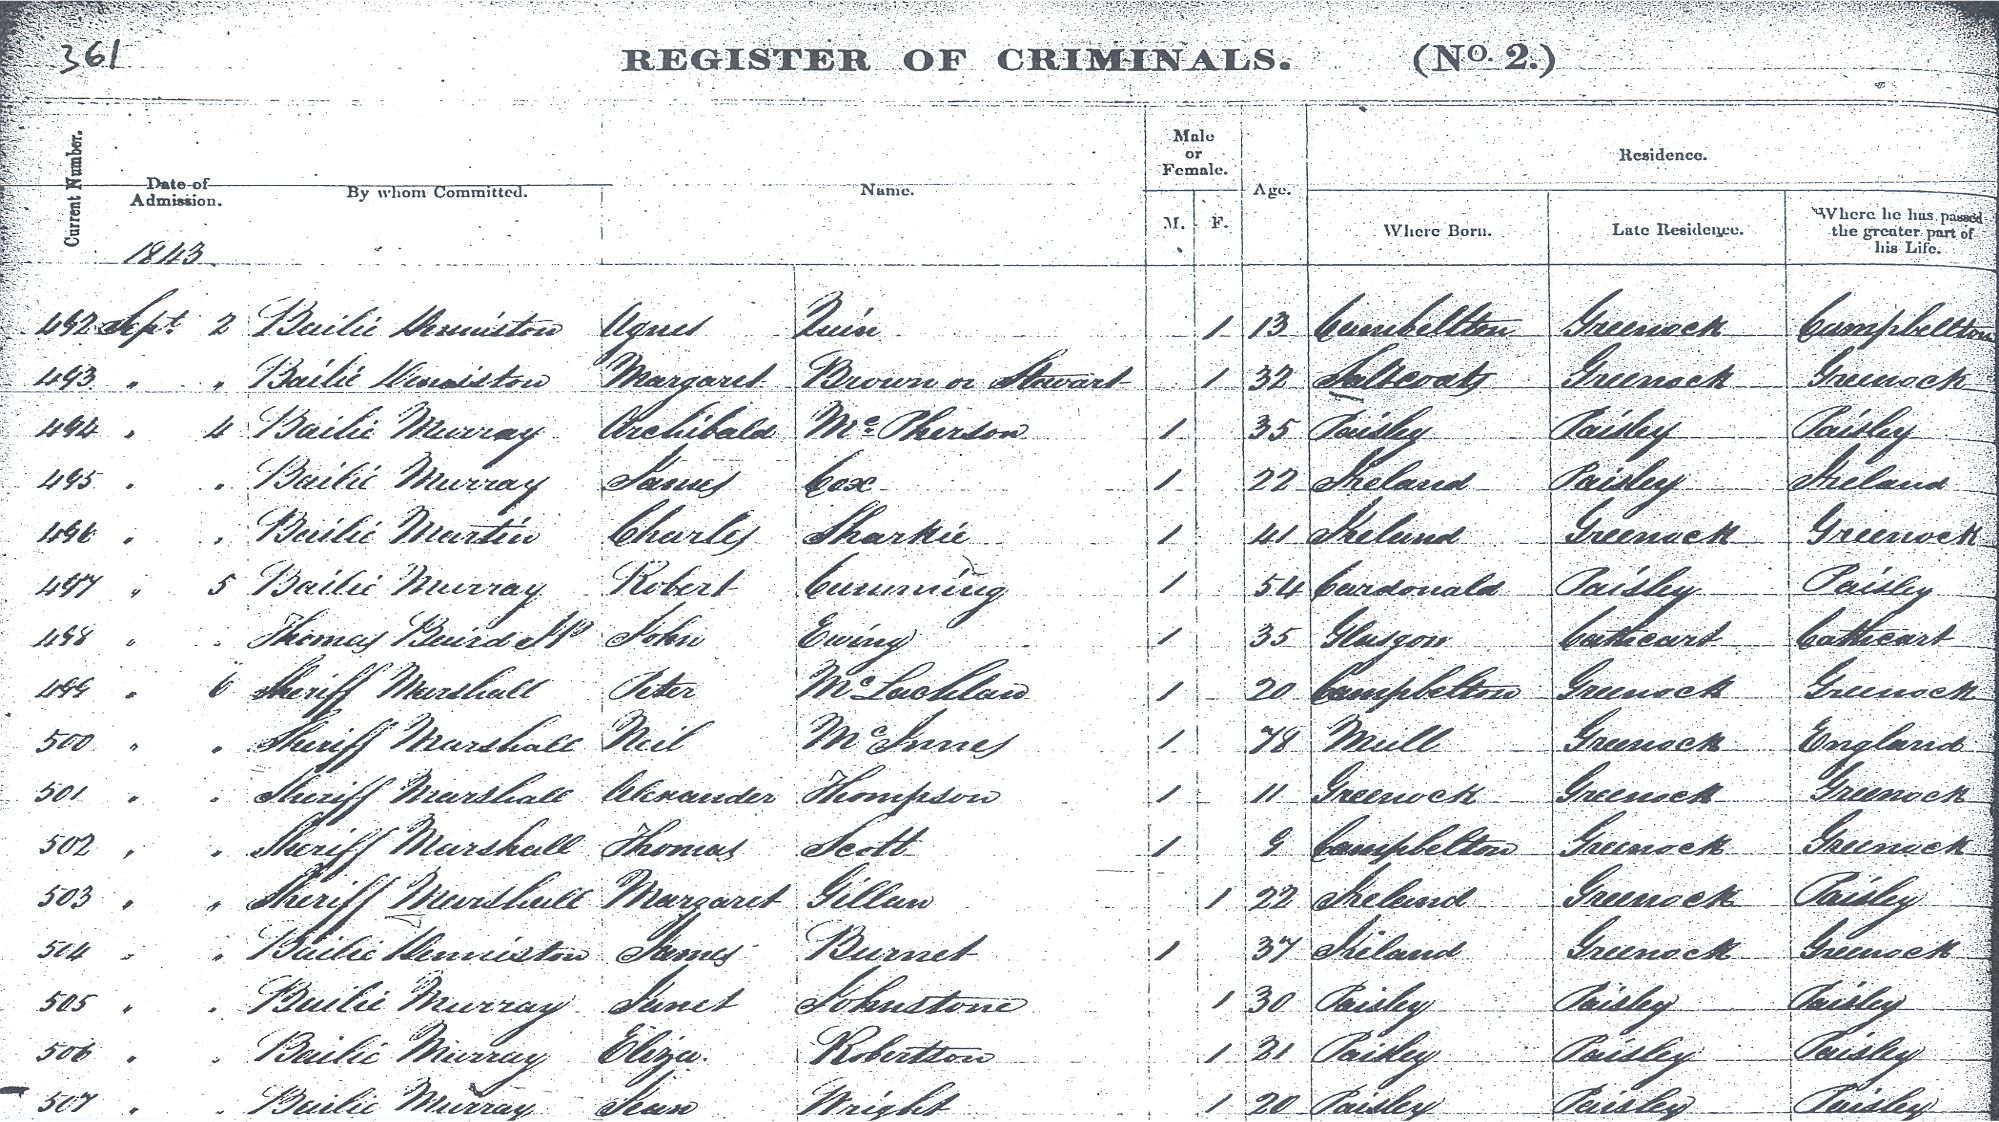 361 REGISTER OF CRIMINALS. (No. 2.)
Current Number. Date of Admission. By whom Committed. Name. Male or Female. Age. Residence.
M. F. Where Born. Late Residence. Where he has passed the greater part of his Life.
1843
492 Sept 2 Bailie Denniston Agnes Quin 1 13 Cambeltton Greenock Campbeltton
493 " " Bailie Denniston Margaret Brown or Stewart 1 32 Saltcoats Greenock Greenock
494 " 4 Bailie Murray Archibald McPherson 1 35 Paisley Paisley Paisley
495 " " Bailie Murray James Cox 1 22 Ireland Paisley Ireland
496 " " Bailie Martin Charles Sharkie 1 41 Ireland Greenock Greenock
497 " 5 Bailie Murray Robert Cumming 1 54 Cardonald Paisley Paisley
498 " " Thomas Baird JP John Ewing 1 35 Glasgow Cathcart Cathcart
499 " 6 Sheriff Marshall Peter McLachlan 1 20 Campbelton Greenock Greenock
500 " " Sheriff Marshall Neil McInnes 1 78 Mull Greenock England
501 " " Sheriff Marshall Alexander Thompson 1 11 Greenock Greenock Greenock
502 " " Sheriff Marshall Thomas Scott 1 9 Campbelton Greenock Greenock
503 " " Sheriff Marshall Margaret Gillan 1 22 Ireland Greenock Paisley
504 " " Bailie Denniston James Burnet 1 37 Ireland Greenock Greenock
505 " " Bailie Murray Janet Johnstone 1 30 Paisley Paisley Paisley
506 " " Bailie Murray Eliza Robertson 1 21 Paisley Paisley Paisley
507 " " Bailie Murray Jean Wright 1 20 Paisley Paisley Paisley